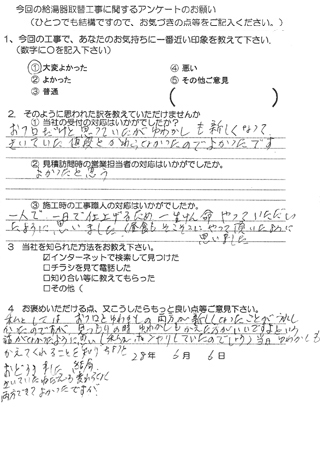 今回の給湯器取替工事に関するアンケートのお願い
(ひとつでも結構ですので、お気づきの点等をご記入ください。)
1、今回の工事で、あなたのお気持ちに一番近い印象を教えて下さい。
(数字に○を記入下さい)
① 大変よかった
④ 悪い
② よかった
⑤ その他ご意見
③ 普通
2. そのように思われた訳を教えていただけませんか
① 当社の受付の対応はいかがでしたか?
おフロだけと思っていたがゆわかしも新しくなって
きいていた値段とかわらなかったのでよかったです
② 見積訪問時の営業担当者の対応はいかがでしたか。
よかったと思う
③ 施工時の工事職人の対応はいかがでしたか。
一人で、一日で仕上げるため一生けん命やっていただい
たように思いました
やって頂いたように
思いました
3 当社を知られた方法をお教え下さい。
☑インターネットで検索して見つけた
□チラシを見て電話した
□知り合い等に教えてもらった
□その他(
4 お褒めいただける点、又こうしたらもっと良い点等ご意見下さい。
おフロとゆわかしの両方が新しくなったことがうれし
かったのですが
ゆわかしもかえた方がいいですよという
話が
当日ゆわかしも
かえてくれることを知り
28年 6月 6日
おどろきました 結局
きいていた
両方できてよかったですが、